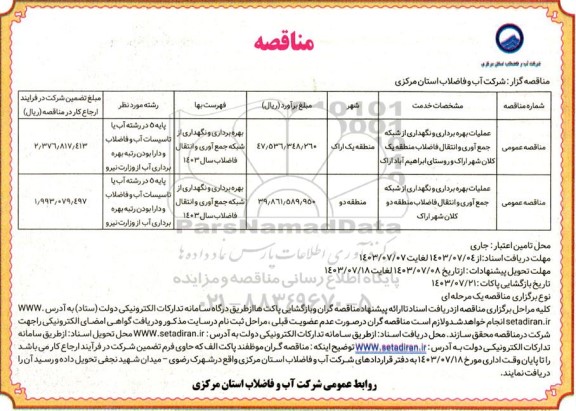 مناقصه
شرکت آب و فاضلاب استان مرکزی
مناقصه گزار : شرکت آب و فاضلاب استان مرکزی
شماره مناقصه | مشخصات خدمت | شهر | مبلغ برآورد (ریال) | فهرست بها | رشته مورد نظر | مبلغ تضمین شرکت در فرایند ارجاع کار در مناقصه (ریال)
مناقصه عمومی | عملیات بهره برداری و نگهداری از شبکه جمع آوری و انتقال فاضلاب منطقه یک کلان شهر اراک و روستای ابراهیم آباد اراک | منطقه یک اراک | ۴۷/۵۳۶/۳۴۸/۲۶۰ | بهره برداری و نگهداری از شبکه جمع آوری و انتقال فاضلاب سال ۱۴۰۳ | پایه ۵ در رشته آب یا تاسیسات آب و فاضلاب و دارا بودن رتبه بهره برداری آب از وزارت نیرو | ۲/۳۷۶/۸۱۷/۴۱۳
مناقصه عمومی | عملیات بهره برداری و نگهداری از شبکه جمع آوری و انتقال فاضلاب منطقه دو کلان شهر اراک | منطقه دو | ۳۹/۸۶۱/۵۸۹/۹۵۰ | بهره برداری و نگهداری از شبکه جمع آوری و انتقال فاضلاب سال ۱۴۰۳ | پایه ۵ در رشته آب یا تاسیسات آب و فاضلاب و دارا بودن رتبه بهره برداری آب از وزارت نیرو | ۱/۹۹۳/۰۷۹/۴۹۷
محل تامین اعتبار : جاری
مهلت دریافت اسناد: از ۱۴۰۳/۰۷/۰۴ لغایت ۱۴۰۳/۰۷/۰۷
مهلت تحویل پیشنهادات : از تاریخ ۱۴۰۳/۰۷/۰۸ لغایت ۱۴۰۳/۰۷/۱۸
تاریخ بازگشایی پاکات : ۱۴۰۳/۰۷/۲۱
نوع برگزاری مناقصه یک مرحله ای
کلیه مراحل برگزاری مناقصه از دریافت اسناد تا ارائه پیشنهاد مناقصه گران و بازگشایی پاکت ها از طریق درگاه سامانه تدارکات الکترونیکی دولت (ستاد) به آدرس .WWW
setadiran.ir انجام خواهد شد و لازم است مناقصه گران در صورت عدم عضویت قبلی ، مراحل ثبت نام در سایت مذکور و دریافت گواهی امضای الکترونیکی را جهت
شرکت در مناقصه محقق سازند. محل دریافت اسناد : از طریق سامانه تدارکات الکترونیکی دولت به آدرس : www.setadiran.ir محل تحویل اسناد : از طریق سامانه
تدارکات الکترونیکی دولت به آدرس : www.setadiran.ir توضیح اینکه : مناقصه گران موظفند پاکت الف که حاوی فرم تضمین شرکت در فرآیند ارجاع کار می باشد
را تا پایان وقت اداری مورخ ۱۴۰۳/۰۷/۱۸ به دفتر قراردادهای شرکت آب و فاضلاب استان مرکزی واقع در شهرک رضوی – میدان شهید نجفی تحویل داده و رسید آن را
دریافت نمایند.
روابط عمومی شرکت آب و فاضلاب استان مرکزی
ParsNamadData
پایگاه اطلاع رسانی مناقصه و مزایده
۰۲۱-۸۸۳۴۹۶۷۰-۵